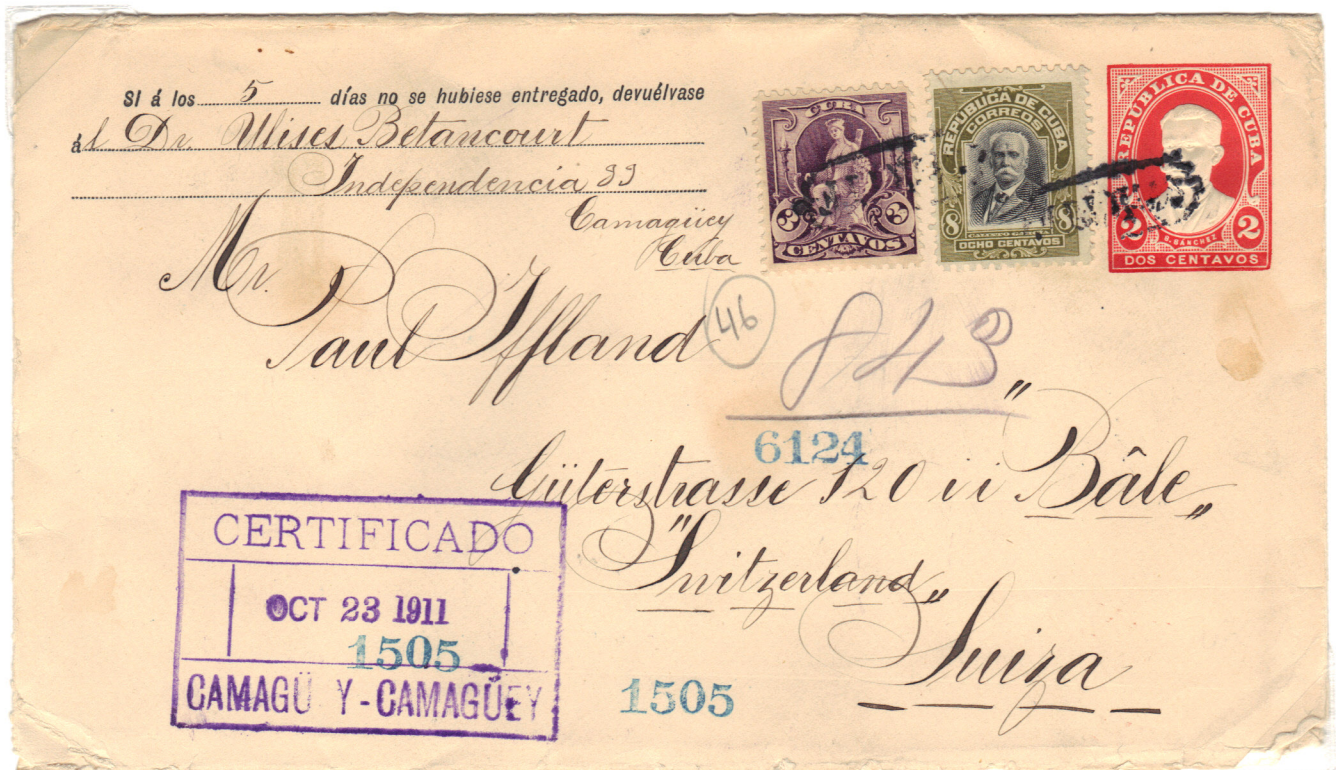 SI á los 5 días no se hubiese entregado, devuélvase
ál Dr. Ulises Betancourt
Independencia 33
Camagüey
Cuba
CUBA
3 3
CENTAVOS
REPUBLICA DE CUBA
CORREOS
8 8
CALIXTO GARCIA
OCHO CENTAVOS
REPUBLICA DE CUBA
2 2
S. SÁNCHEZ
DOS CENTAVOS
Mr.
Paul Iffland
46
843
6124
Güterstrasse 120 ii "Bâle"
"Switzerland"
Suiza
CERTIFICADO
OCT 23 1911
1505
CAMAGÜ Y - CAMAGÜEY
1505